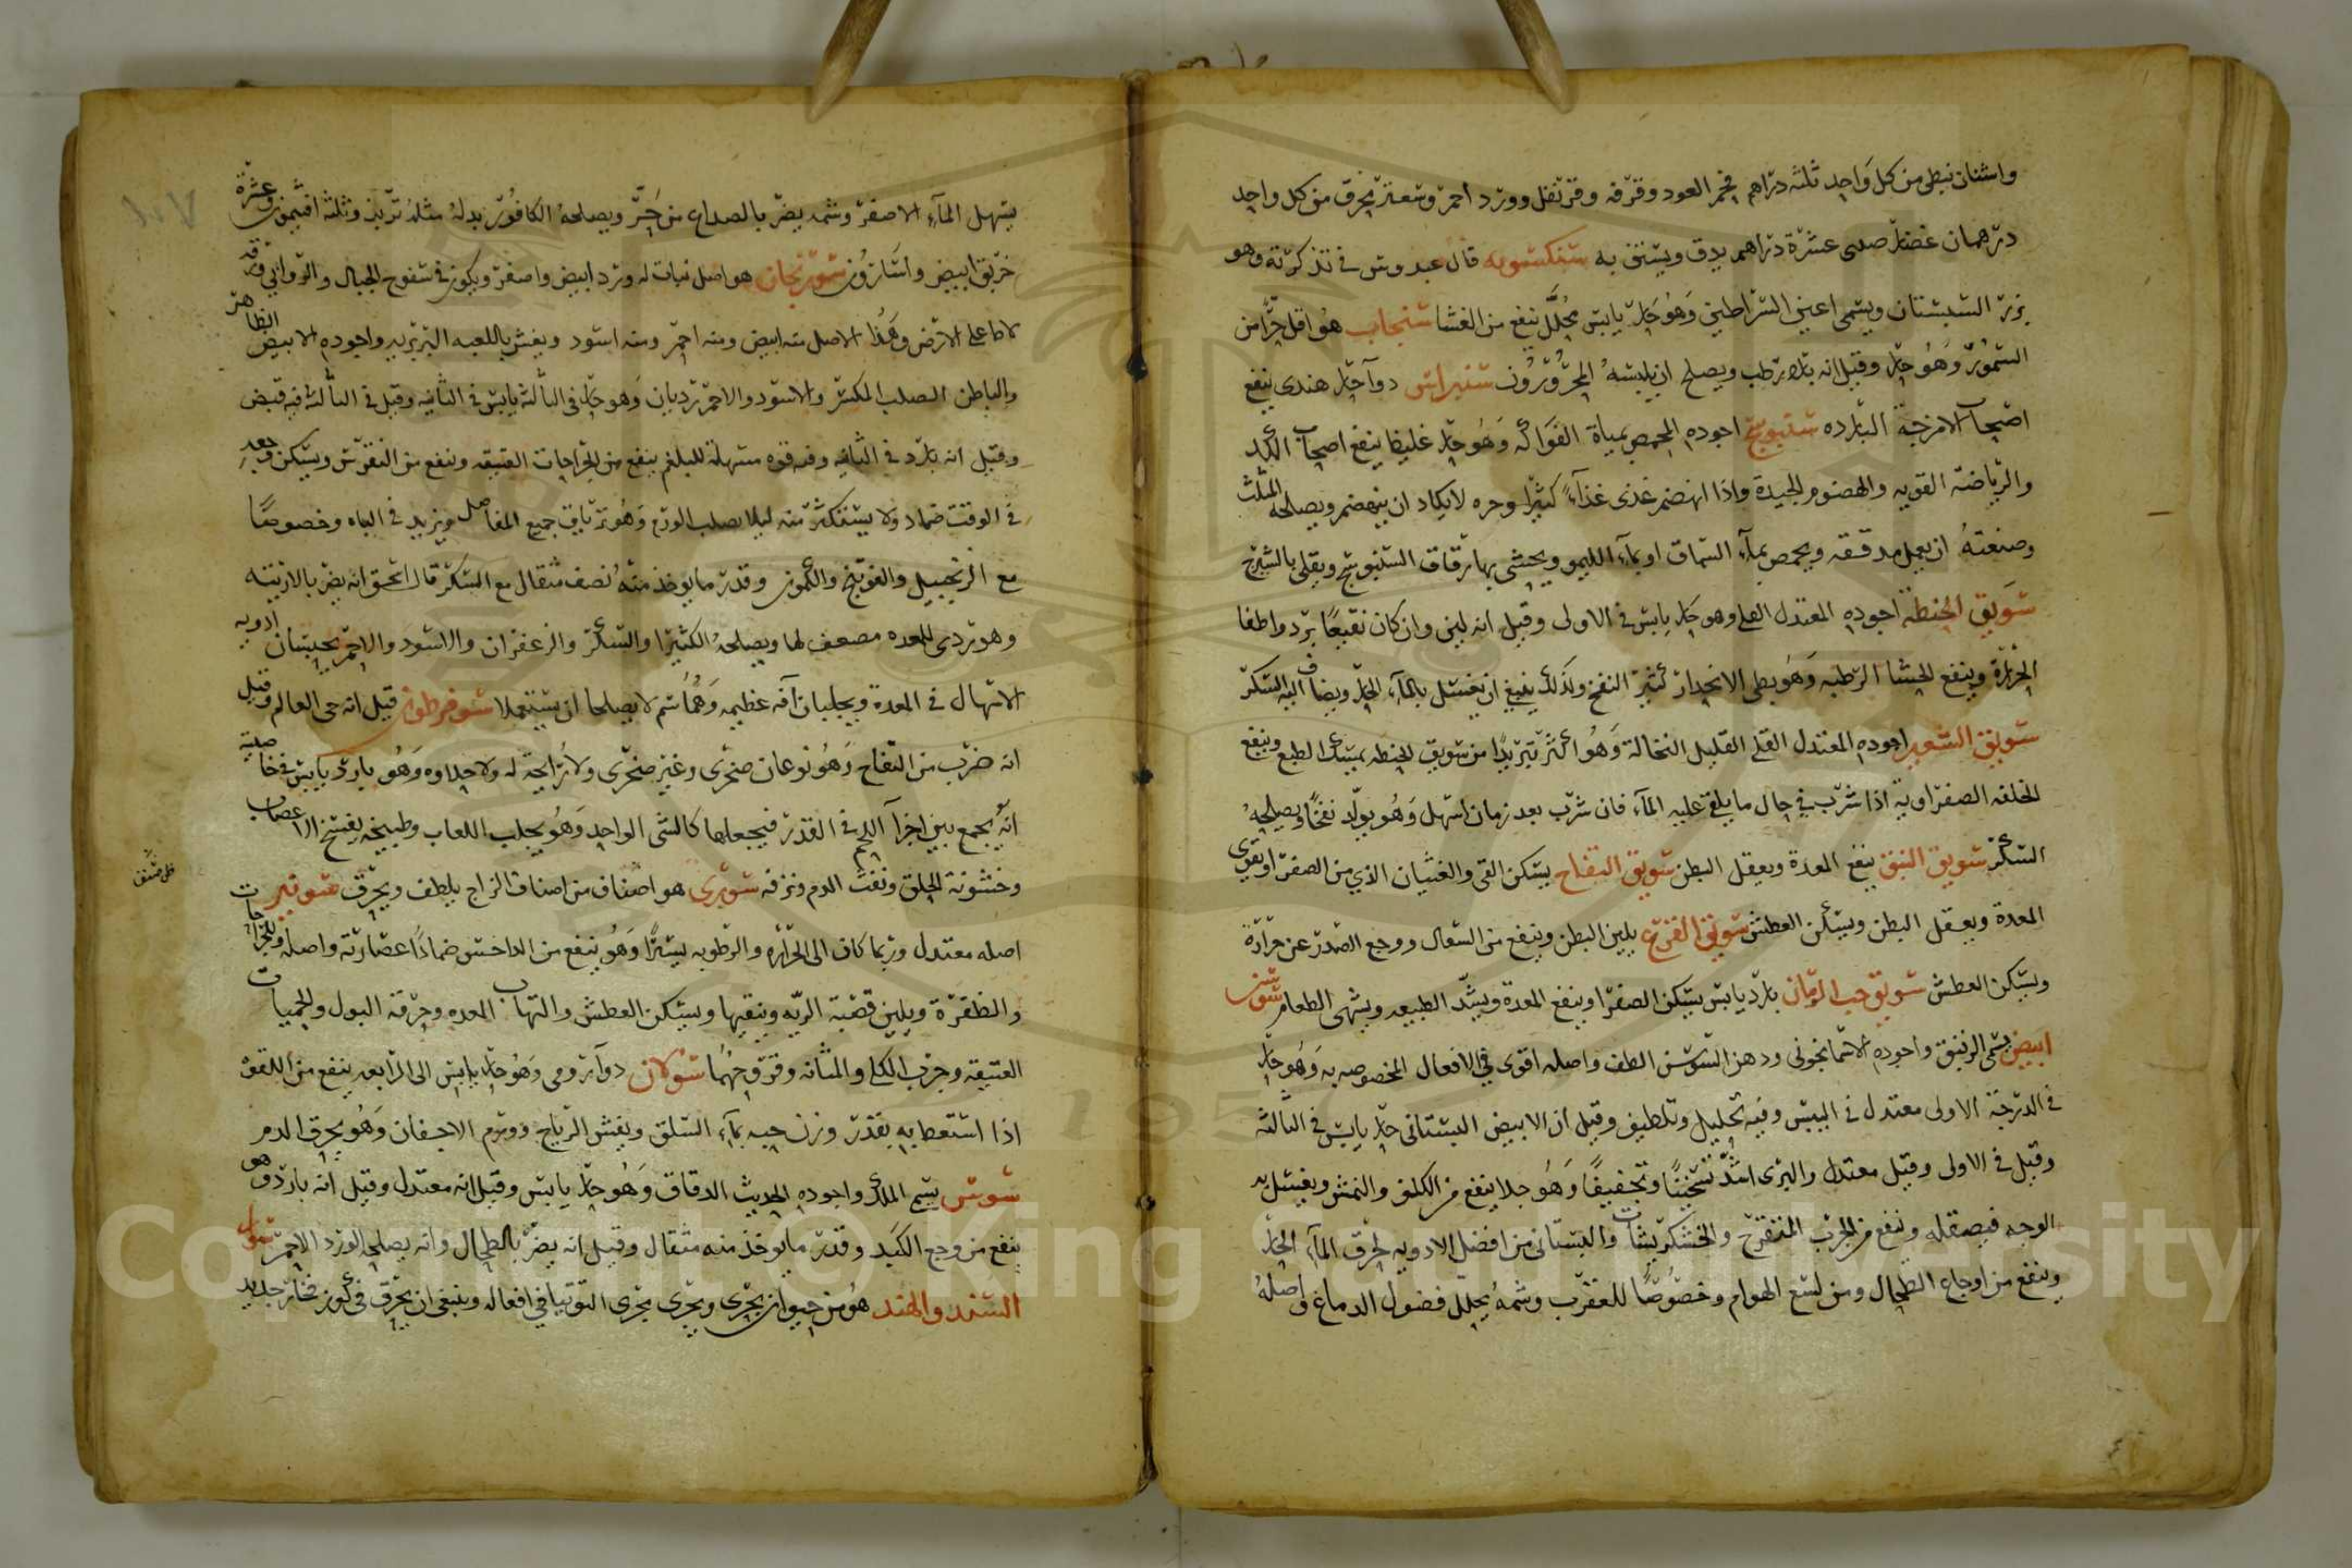 واشنان نبطي من كل واحد ثلثه دراهم فحم العود وقرفه وقرنفل وورد احمر وسعد محرق من كل واحد
درهمان عضل صلى عشرة دراهم يدق ويستن به سنكسبويه قال عبدوس في تذكرته وهو
بزر السبستان ويسمى اعين السراطين وهو حار يابس محلل ينفع من الغشا سنجاب هو اقل حرا من
السمور وهو حار وقيل انه بارد رطب ويصلح ان يلبسه المحرورون سنبراس دوآ حار هندي ينفع
اصحاب الامزجة البارده سنبوسج اجوده المحمص بمياة الفواكه وهو حار غليظ ينفع اصحاب الكد
والرياضة القويه والهضوم الجيدة واذا انهضم غذى غذآء كثيرا وحره لا يكاد ان ينهضم ويصلحه المثلث
وصنعته ان يعمل مدققه ويحمص بمآء السماق او بمآء الليمو ويحشى بها رقاق السنبوسج ويقلى بالشيرج
سويق الحنطة اجوده المعتدل القلى وهو حار يابس في الاولى وقيل انه لين وان كان نقيعا برد واطفا
الحرارة وينفع للحشا الرطبه وهو بطى الانحدار كثير النفخ ولذلك ينبغي ان يغسل بالمآء الحار ويضاف اليه السكر
سويق الشعير اجوده المعتدل القلى القليل النخالة وهو اكثر تبريدا من سويق الحنطه يمسك الطبع وينفع
الخلفه الصفراويه اذا شرب في حال ما يلقى عليه المآء فان شرب بعد زمان اسهل وهو يولد نفخا ويصلحه
السكر سويق النبق ينفع المعدة ويعقل البطن سويق التفاح يسكن القى والغثيان الذي من الصفرا ويقوى
المعدة ويعقل البطن ويسكن العطش سويق القرع يلين البطن وينفع من السعال ووجع الصدر عن حرارة
ويسكن العطش سويق حب الرمان بارد يابس يسكن الصفرا وينفع المعدة ويشد الطبيعه ويشهى الطعام سوسن
ابيض يسمى الزنبق واجوده الاسمانجونى ودهن السوسن الطف واصله اقوى في الافعال المخصوصه به وهو حار
في الدرجة الاولى معتدل في اليبس وفيه تحليل وتلطيف وقيل ان الابيض البستانى حار يابس في الثالثة
وقيل في الاولى وقيل معتدل والبرى اشد تسخينا وتجفيفا وهو جلا ينفع من الكلف والنمش ويغسل به
الوجه فيصقله وينفع من الجرب المتقرح والخشكريشات والبستانى من افضل الادويه لحرق المآء الحار
وينفع من اوجاع الطحال ومن لسع الهوام وخصوصا للعقرب وشمه يحلل فضول الدماغ واصله
يسهل المآء الاصفر وشمه يضر بالصداع من حر ويصلحه الكافور بدله مثله تربد وثلثه افتيمون وعشره
خربق ابيض واسارون سورنجان هو اصل نبات له ورد ابيض واصفر ويكون في سفوح الجبال والروابي ورقه
لاطا على الارض وهذا الاصل منه ابيض ومنه احمر ومنه اسود ويغش باللعبه البربريه واجوده الابيض الظاهر
والباطن الصلب المكسر والاسود والاحمر رديان وهو حار في الثالثة يابس في الثانيه وقيل في الثالثة فيه قبض
وقيل انه بارد في الثانيه وفيه قوه مسهلة للبلغم ينفع من الجراحات العتيقه وينفع من النقرس ويسكن وجعه
في الوقت ضماد ولا يستكثر منه ليلا يصلب الورم وهو ترياق جميع المفاصل ويزيد في الباه وخصوصا
مع الزنجبيل والفوتنج والكمون وقدر ما يوخذ منه نصف مثقال مع السكر قال اسحق انه يضر بالارنبيه
وهو ردى للمعده مضعف لها ويصلحه الكثيرا والسكر والزعفران والاسود والاحمر يحبسان ادويه
الاسهال في المعدة ويجلبان آفه عظيمه وهما سم لا يصلحا ان يستعملا سوفرطون قيل انه حى العالم وقيل
انه ضرب من التفاح وهو نوعان صخرى وغير صخرى ولا رائحة له ولا حلاوه وهو بارد يابس في خاصيته
انه يجمع بين اجزآ اللحم في القدر فيجعلها كالشى الواحد وهو يجلب اللعاب وطبيخه لفسخ الاعصاب
وخشونة الحلق ونفث الدم ونزفه سورى هو اصناف من اصناف الزاج يلطف ويحرق سوقير
اصله معتدل وربما كان الى الحراره والرطوبه يسيرا وهو ينفع من الداحس ضمادا عصارته واصله وللجراحات
والظفرة ويلين قصبة الريه وينقيها ويسكن العطش والتهاب المعده وحرقة البول والحميات
العتيقه وجرب الكلى والمثانه وقروحهما سولان دوآ رومى وهو حار يابس الى الرابعه ينفع من اللقوة
اذا استعط به بقدر وزن حبه بمآء السلق ويفش الرياح وورم الاجفان وهو يحرق الدم
سوس يسم الملك واجوده الحديث الدقاق وهو حار يابس وقيل انه معتدل وقيل انه بارد وهو
ينفع من وجع الكبد وقدر ما يوخذ منه مثقال وقيل انه يضر بالطحال وانه يصلحه الورد الاحمر سوار
السند والهند هو من حيوان بحرى ويجرى مجرى التوتيا في افعاله وينبغى ان يحرق في كوز فخار جديد